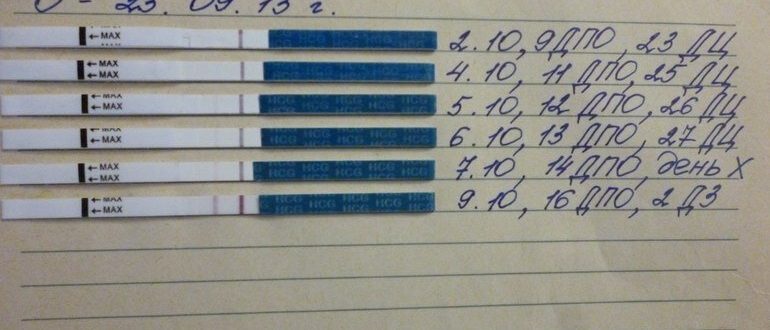 О - 23. 09. 13 г.
← MAX
← MAX HCG HCG HCG 2.10, 9 ДПО, 23 ДЦ
← MAX
← MAX HCG HCG HCG 4.10, 11 ДПО, 25 ДЦ
← MAX
← MAX HCG HCG HCG 5.10, 12 ДПО, 26 ДЦ
← MAX
← MAX HCG HCG HCG 6.10, 13 ДПО, 27 ДЦ
← MAX
← MAX HCG HCG HCG 7.10, 14 ДПО, день X
← MAX
← MAX HCG HCG HCG 9.10, 16 ДПО, 2 ДЗ